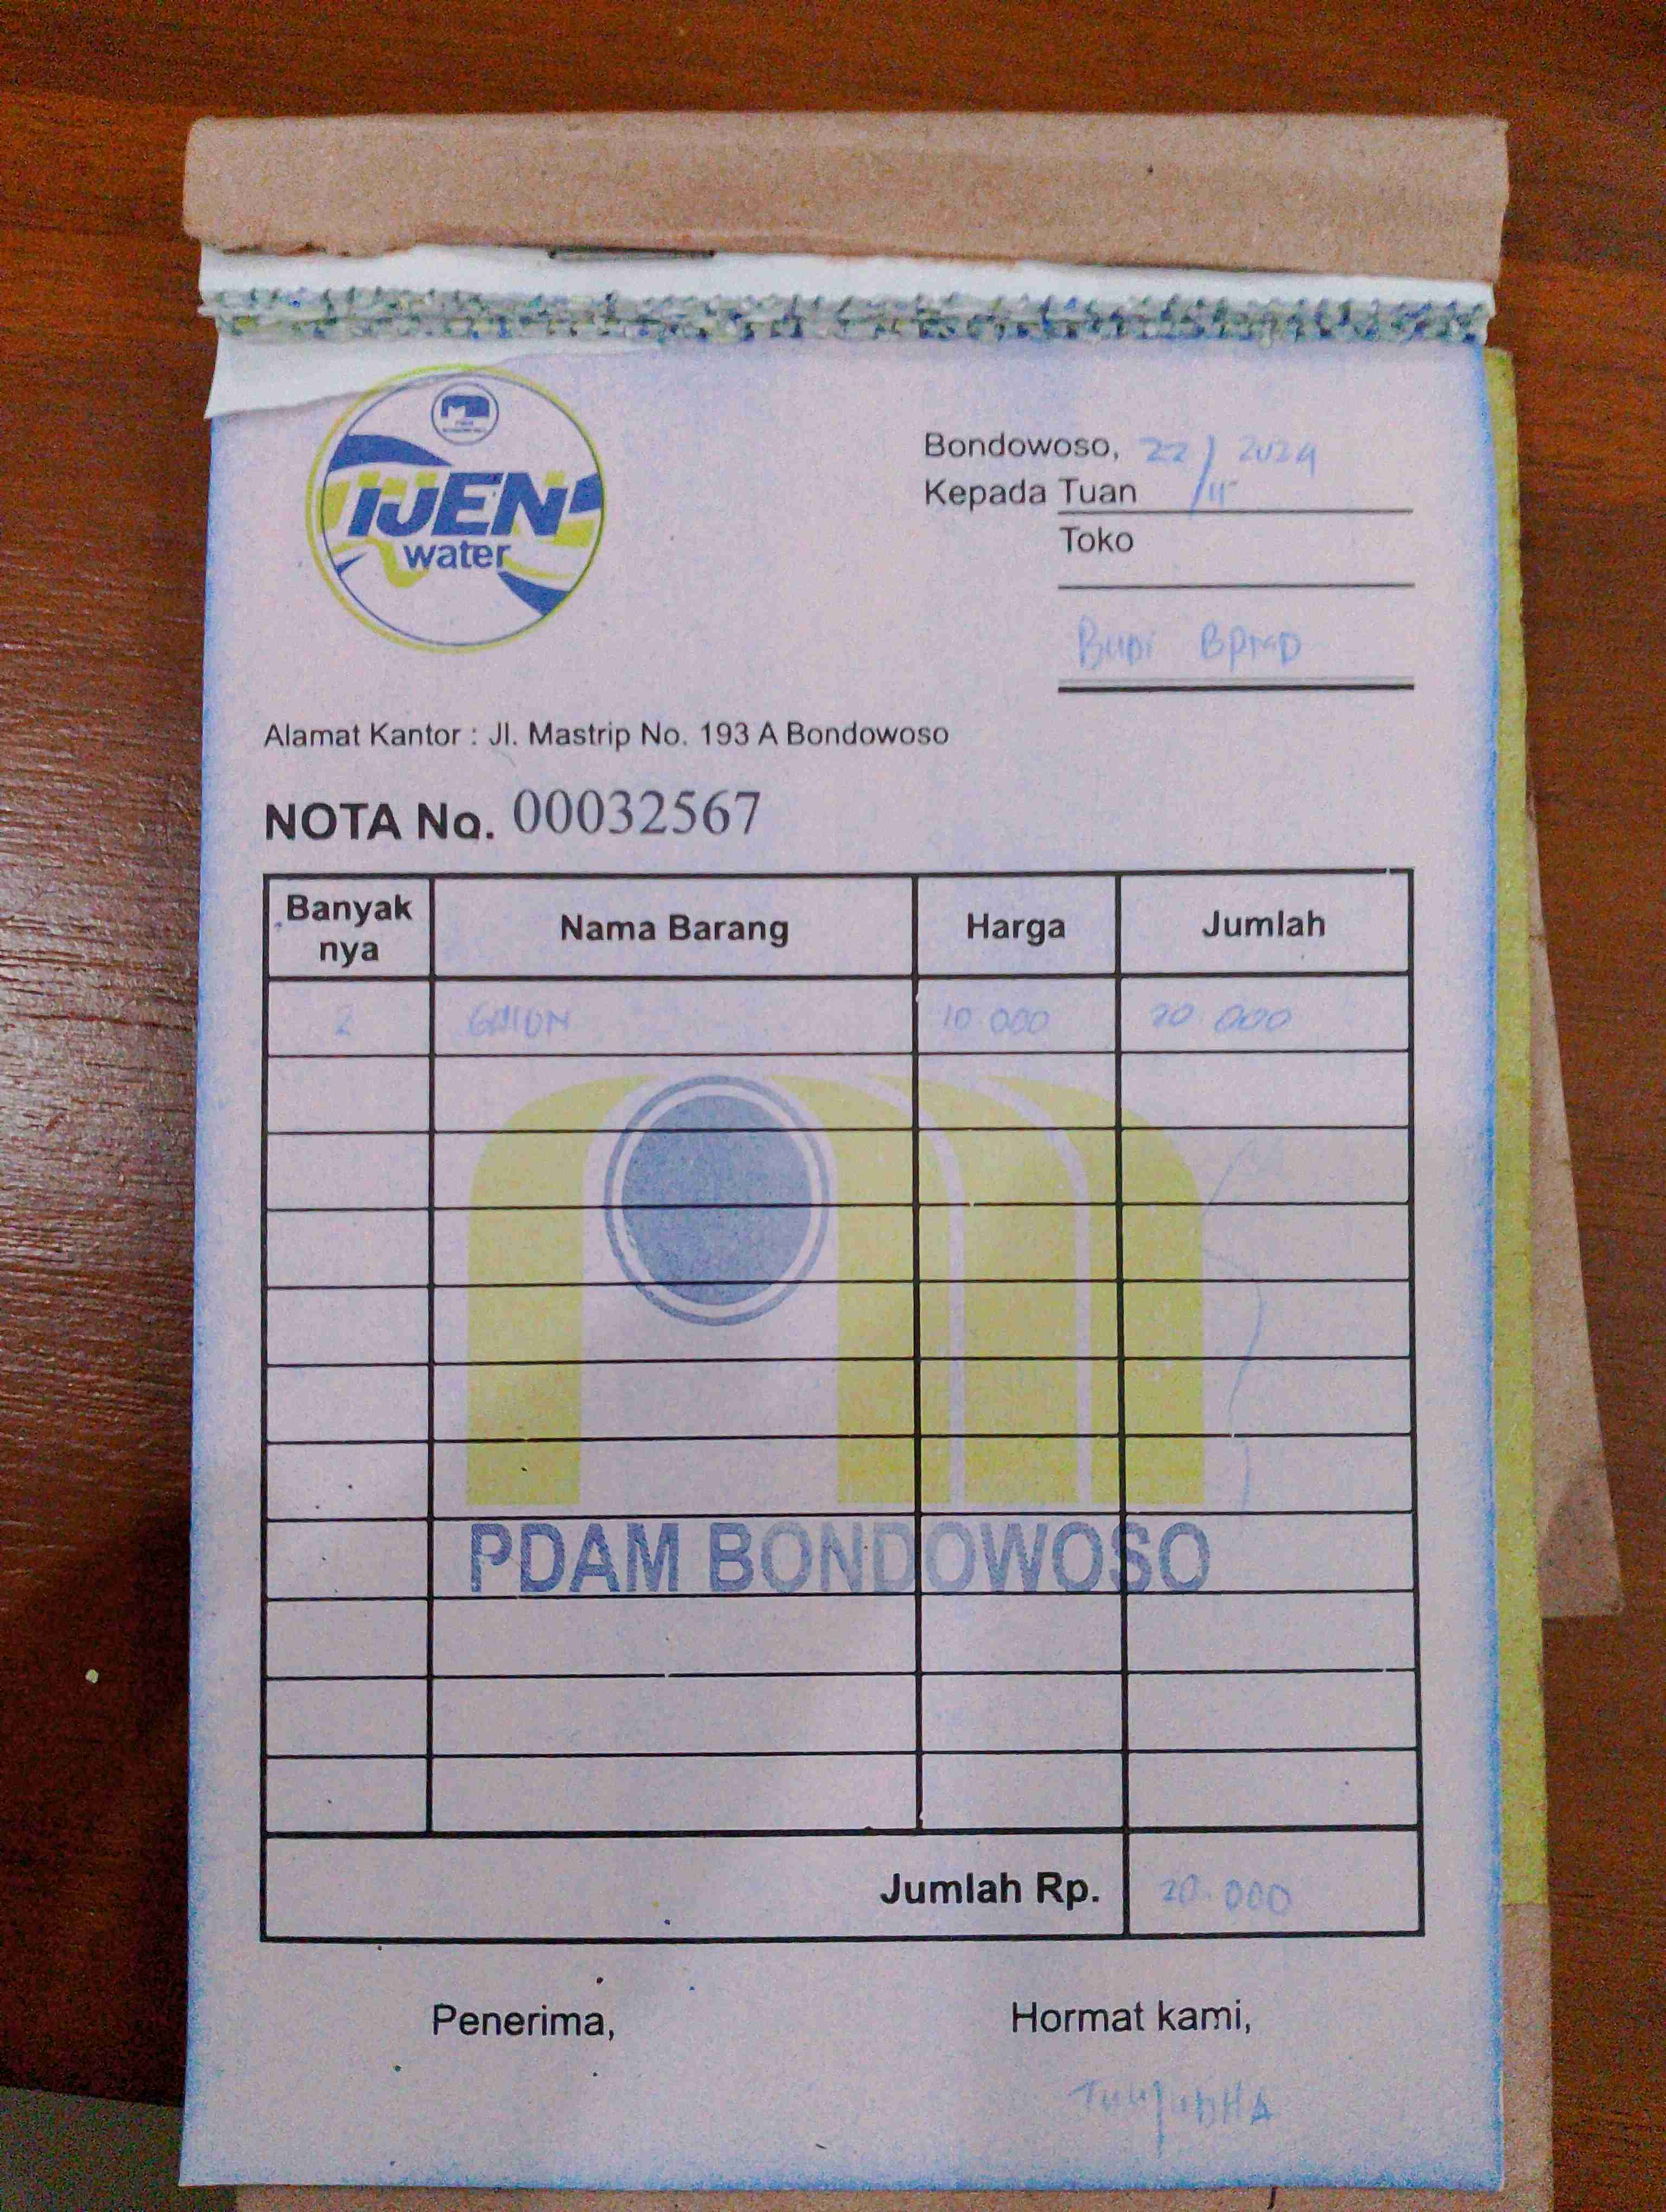 IJEN
water
Bondowoso, 22/11 2024
Kepada Tuan
Toko
Budi BPKAD
Alamat Kantor : Jl. Mastrip No. 193 A Bondowoso
NOTA No. 00032567
Banyak nya Nama Barang Harga Jumlah
2 GALON 10.000 20.000
PDAM BONDOWOSO
Jumlah Rp. 20.000
Penerima, Hormat kami,